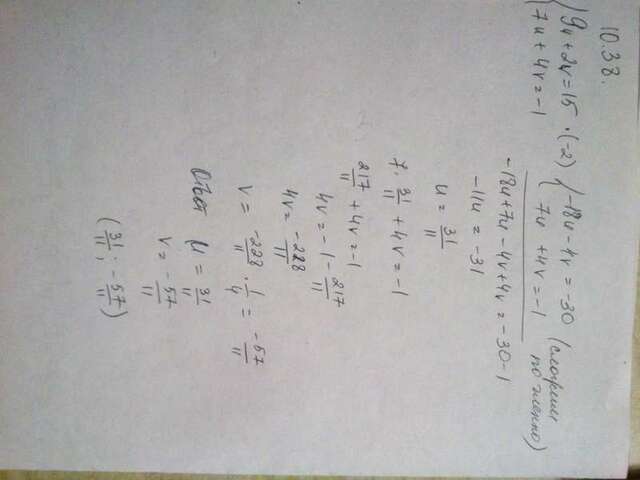 10.38.
{ 9u + 2v = 15 · (-2) { -18u - 4v = -30 (сложим
{ 7u + 4v = -1 { 7u + 4v = -1 по членно)
-18u + 7u - 4v + 4v = -30 - 1
-11u = -31
u = 31/11
7 · 31/11 + 4v = -1
217/11 + 4v = -1
4v = -1 - 217/11
4v = -228/11
v = -228/11 · 1/4 = -57/11
Ответ u = 31/11
v = -57/11
(31/11 ; -57/11)